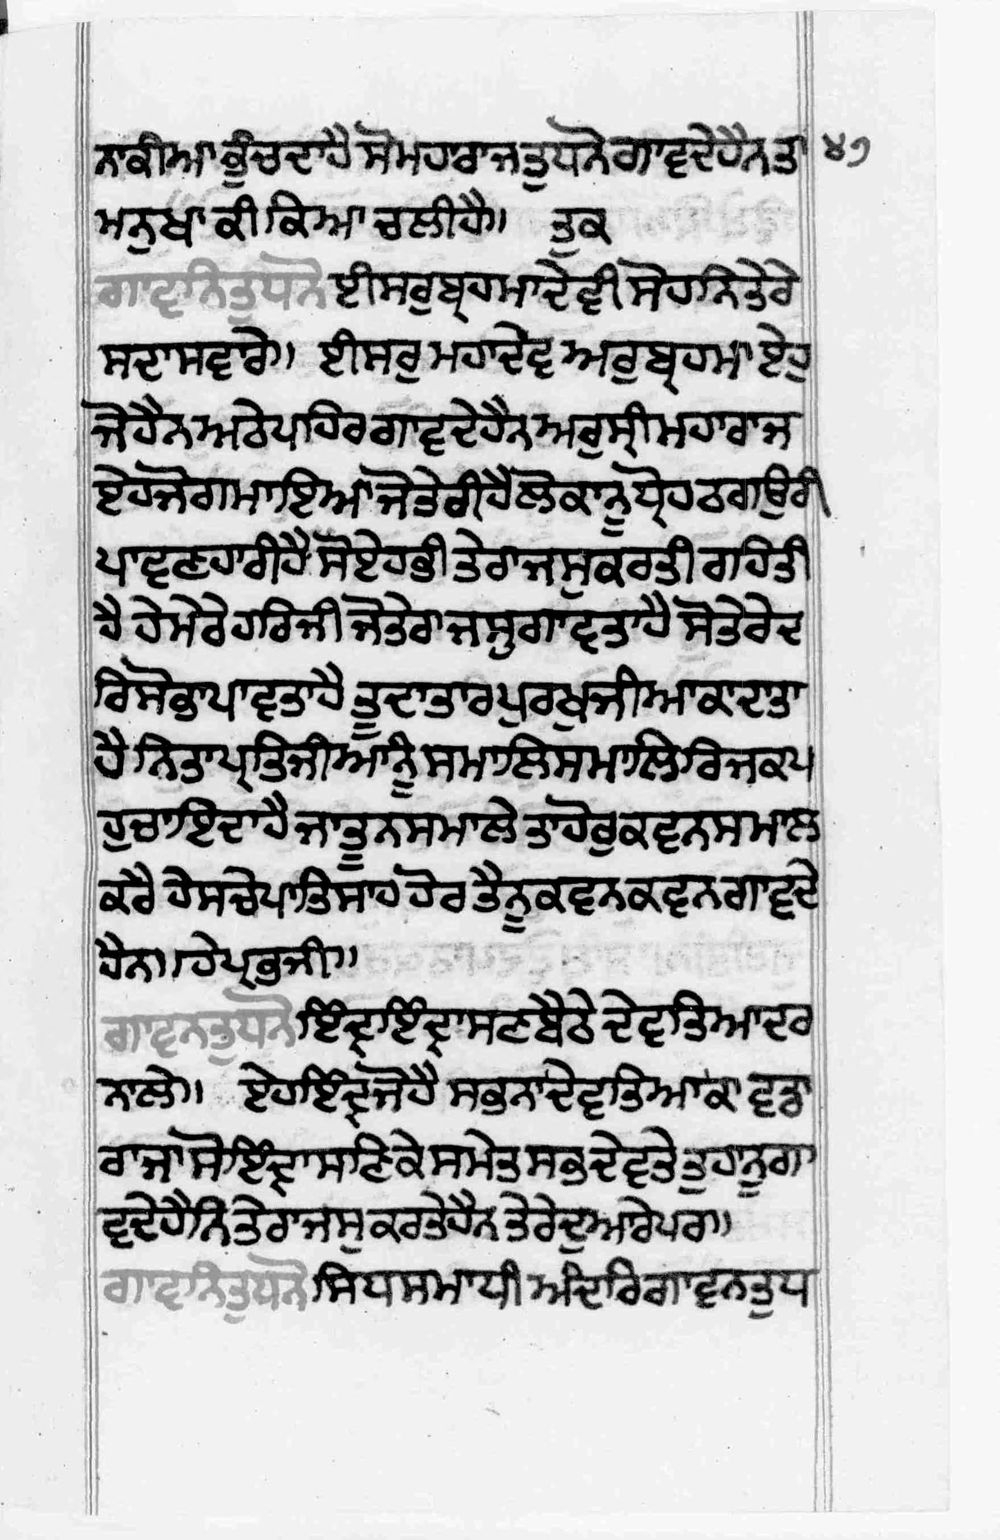 ਨਾਕੀਆ ਭੁੰਚਦਾਹੈ ਸੋ ਮਹਾਰਾਜ ਤੁਧਨੋ ਗਾਵਦੇਹੈਨ ਤਾ ੪੭
ਮਨੁਖਾ ਕੀ ਕਿਆ ਚਲੀਹੈ॥ ਤੁਕ
ਗਾਵਨਿ ਤੁਧਨੋ ਈਸਰੁ ਬ੍ਰਹਮਾ ਦੇਵੀ ਸੋਹਨਿ ਤੇਰੇ
ਸਦਾ ਸਵਾਰੇ॥ ਈਸਰੁ ਮਹਾਦੇਵ ਅਰੁ ਬ੍ਰਹਮਾ ਏਹੁ
ਜੋ ਹੈਨ ਅਠੇ ਪਹਿਰ ਗਾਵਦੇਹੈਨ ਅਰੁ ਸ੍ਰੀ ਮਹਾਰਾਜ
ਏਹ ਜੋਗਮਾਇਆ ਜੋ ਤੇਰੀਹੈ ਲੋਕਾ ਨੂ ਧ੍ਰੋਹ ਠਗਉਰੀ
ਪਾਵਣਹਾਰੀਹੈ ਸੋ ਏਹ ਭੀ ਤੇਰਾ ਜਸੁ ਕਰਤੀ ਰਹਿਤੀ
ਹੈ ਹੇ ਮੇਰੇ ਹਰਿਜੀ ਜੋ ਤੇਰਾ ਜਸੁ ਗਾਵਤਾਹੈ ਸੋ ਤੇਰੇ ਦ
ਰਿ ਸੋਭਾ ਪਾਵਤਾਹੈ ਤੂ ਦਾਤਾਰ ਪੁਰਖੁ ਜੀਆ ਕਾ ਦਾਤਾ
ਹੈ ਨਿਤਾਪ੍ਰਤਿ ਜੀਆ ਨੂੰ ਸਮਾਲਿ ਸਮਾਲਿ ਰਿਜਕ ਪ
ਹੁਚਾਇਦਾਹੈ ਜਾ ਤੂ ਨ ਸਮਾਲੇ ਤਾ ਹੋਰੁ ਕਵਨ ਸਮਾਲ
ਕਰੈ ਹੇ ਸਚੇ ਪਾਤਿਸਾਹ ਹੋਰ ਤੈਨੂ ਕਵਨ ਕਵਨ ਗਾਵਦੇ
ਹੈਨ॥ ਹੇ ਪ੍ਰਭੁਜੀ॥
ਗਾਵਨ ਤੁਧਨੋ ਇੰਦ੍ਰ ਇੰਦ੍ਰਾਸਣ ਬੈਠੇ ਦੇਵਤਿਆ ਦਰ
ਨਾਲੇ॥ ਏਹ ਇੰਦ੍ਰ ਜੋ ਹੈ ਸਭਨਾ ਦੇਵਤਿਆ ਕਾ ਵਡਾ
ਰਾਜਾ ਸੋ ਇੰਦ੍ਰਾਸਣਿ ਕੇ ਸਮੇਤ ਸਭ ਦੇਵਤੇ ਤੁਹਾਨੂ ਗਾ
ਵਦੇ ਹੈਨਿ ਤੇਰਾ ਜਸੁ ਕਰਤੇਹੈਨ ਤੇਰੇ ਦੁਆਰੇ ਪਰ॥
ਗਾਵਨਿ ਤੁਧਨੋ ਸਿਧ ਸਮਾਧੀ ਅੰਦਰਿ ਗਾਵਨ ਤੁਧ